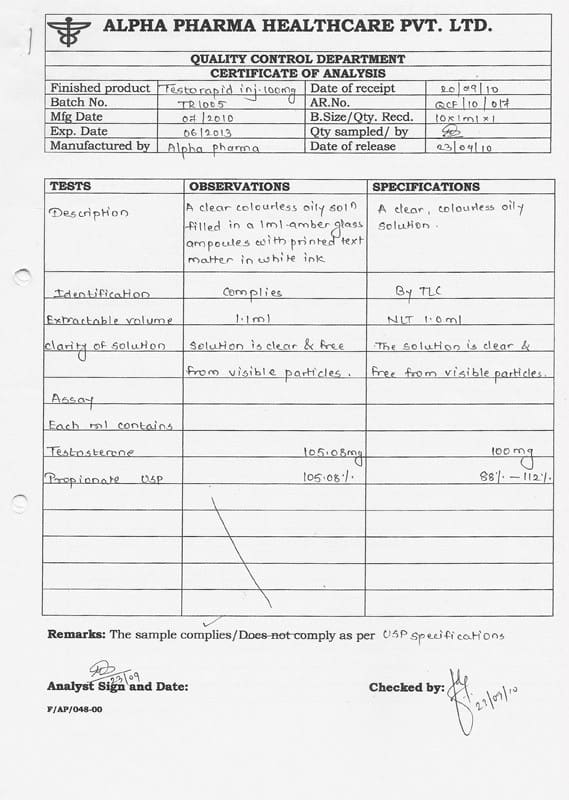 ALPHA PHARMA HEALTHCARE PVT. LTD.
QUALITY CONTROL DEPARTMENT
CERTIFICATE OF ANALYSIS
Finished product Testorapid inj. 100mg Date of receipt 20/09/10
Batch No. TR1005 AR.No. QCF/10/017
Mfg Date 07/2010 B.Size/Qty. Recd. 10x1mlx1
Exp. Date 06/2013 Qty sampled/ by
Manufactured by Alpha pharma Date of release 23/09/10
TESTS OBSERVATIONS SPECIFICATIONS
Description A clear colourless oily soln A clear, colourless oily
filled in a 1ml-amber glass solution.
ampoules with printed text
matter in white ink
Identification Complies By TLC
Extractable volume 1.1ml NLT 1.0ml
clarity of solution Solution is clear & free The solution is clear &
from visible particles. free from visible particles.
Assay
Each ml contains
Testosterone 105.08mg 100mg
Propionate USP 105.08% 88% - 112%
Remarks: The sample complies/Does not comply as per USP Specifications
23/09
Analyst Sign and Date: Checked by: 23/09/10
F/AP/048-00